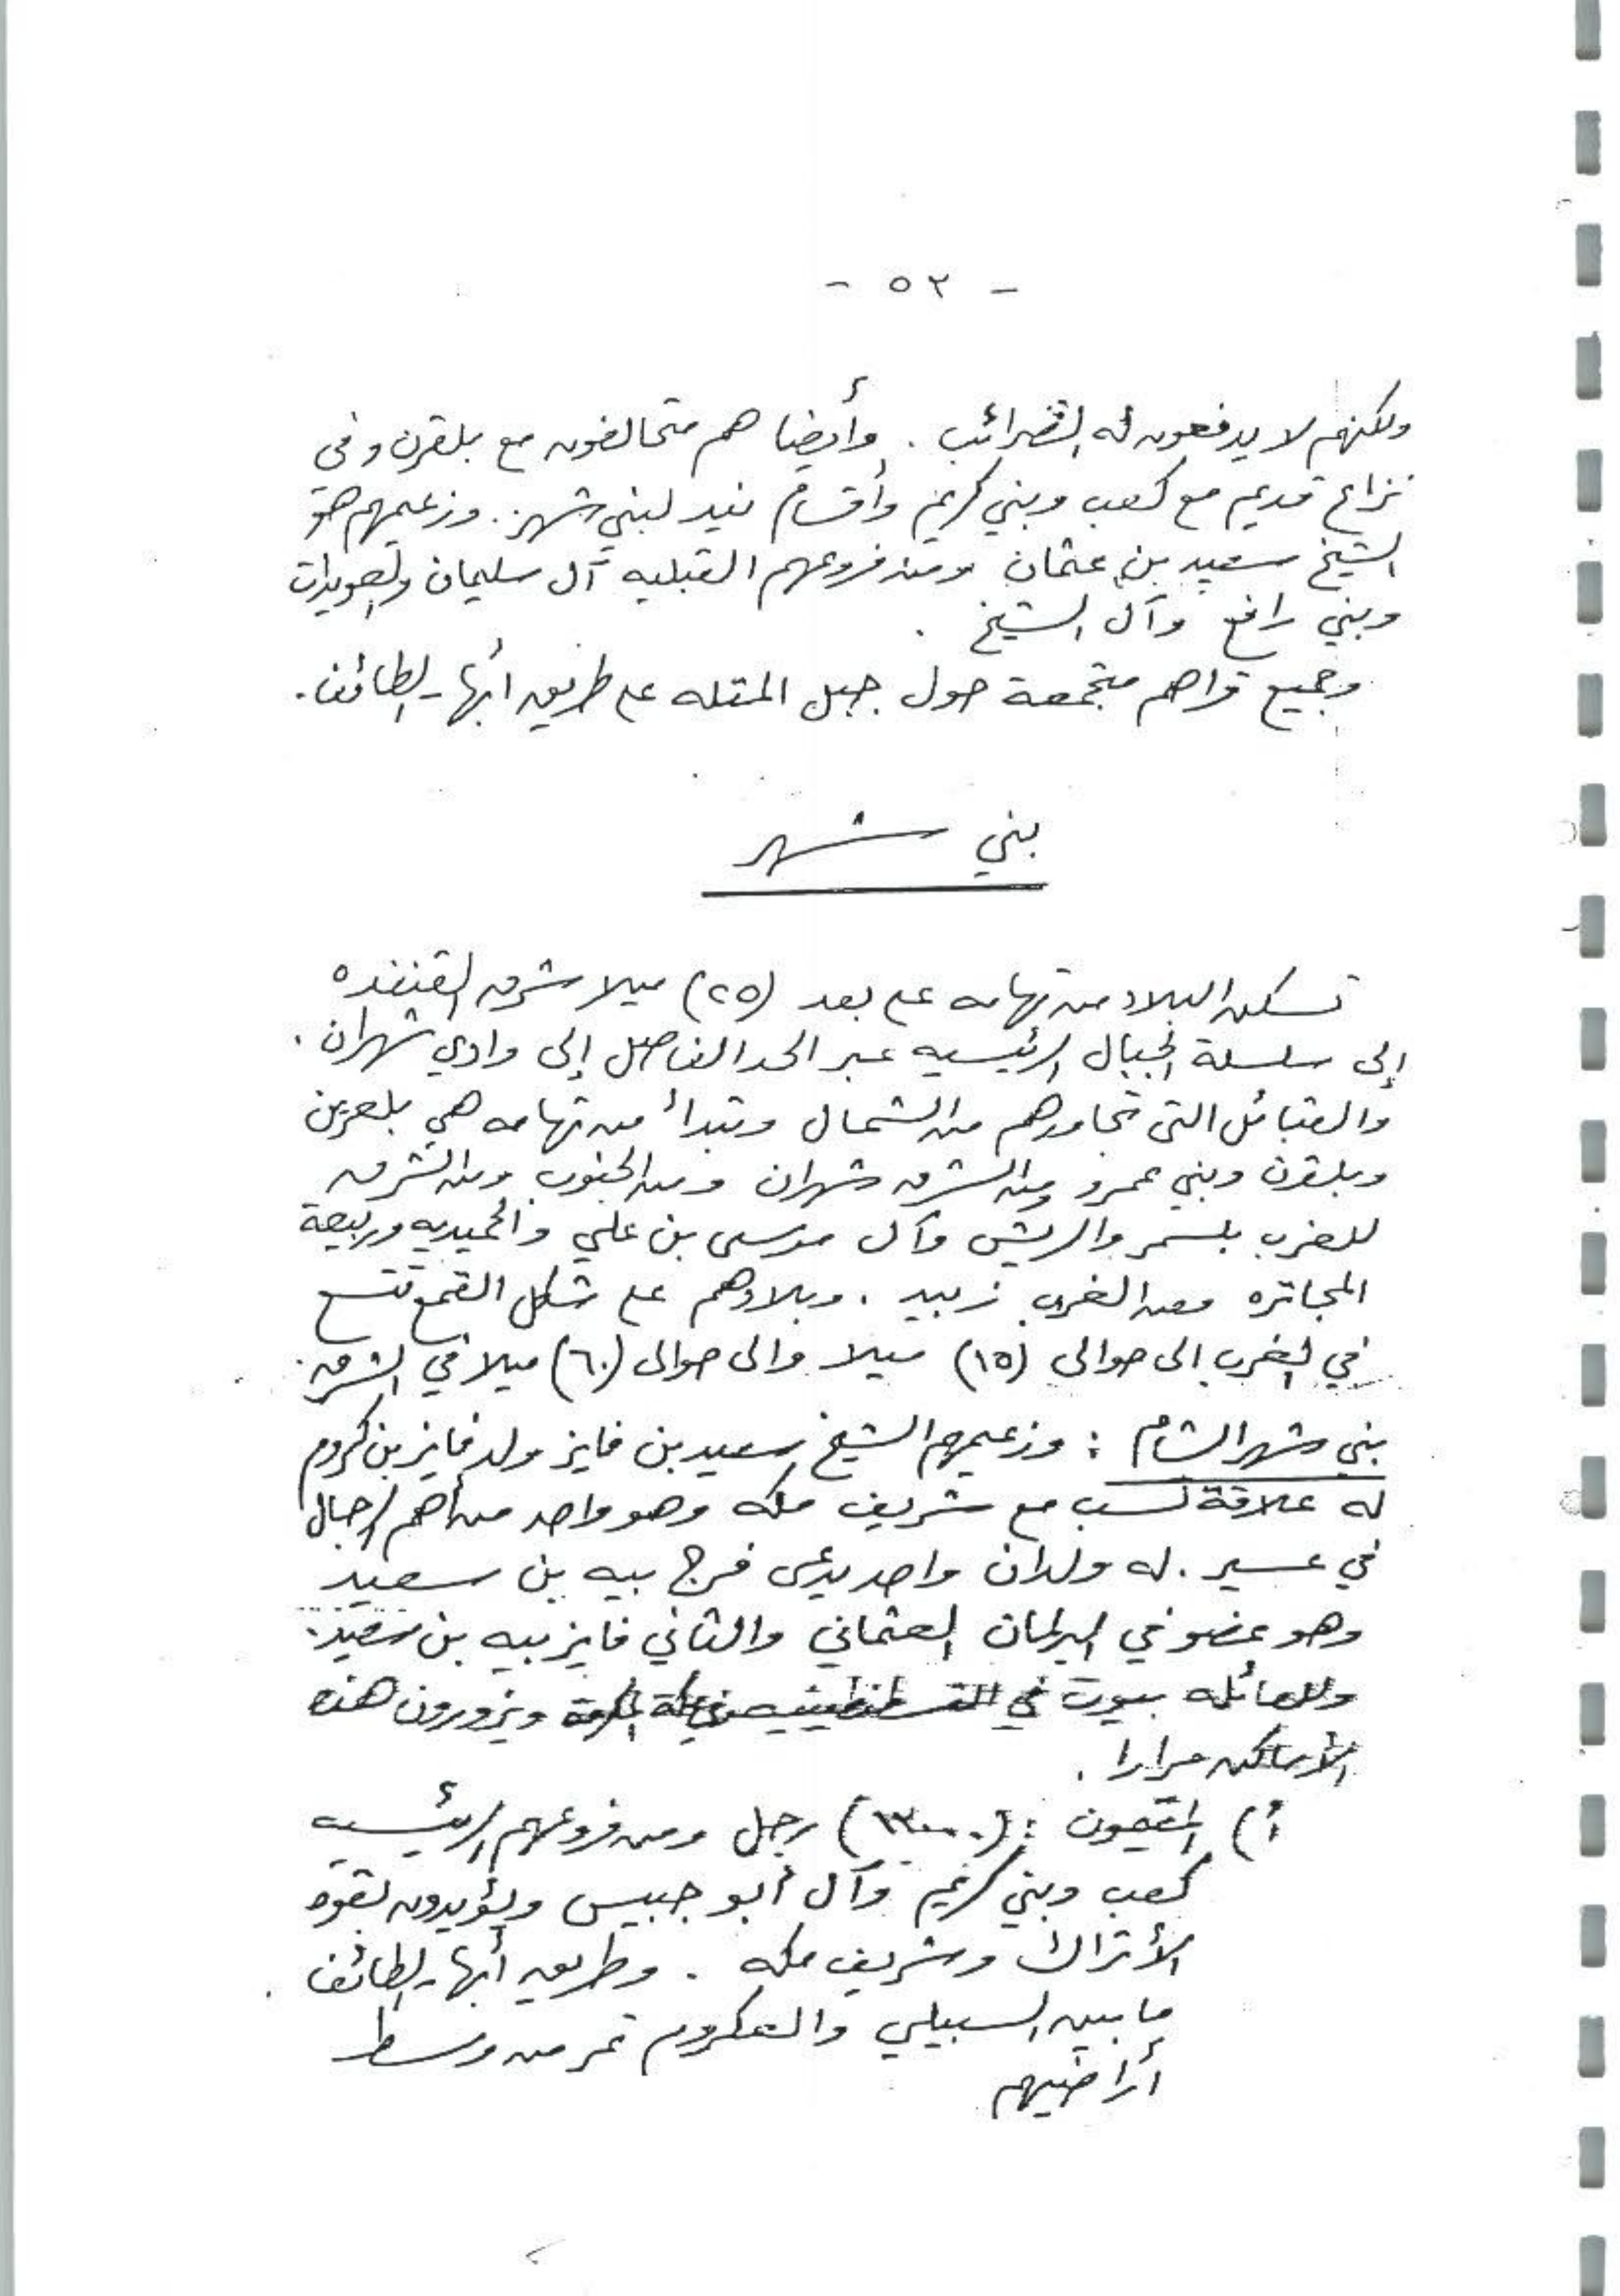 - ٥٢ -
ولكنهم لا يدفعون له الضرائب . وأيضا هم متحالفون مع بلقرن وفي
نزاع قديم مع كعب وبني كريم وأقسام نيد لبني شهر . وزعيمهم هو
الشيخ سعيد بن عثمان ومن فروعهم القبليه آل سليمان والعويرات
وبني رافع وآل الشيخ .
وجميع قراهم متجمعة حول جبل المقله على طريق أبها - الطائف .
بني شهر
تسكن البلاد من تهامه على بعد (٢٥) ميلا شرق القنفذه
إلى سلسلة الجبال الرئيسيه عبر الحد الفاصل إلى وادي شهران .
والقبائل التى تجاورهم من الشمال وتبدأ من تهامه هي بلعرين
وبلقرن وبني عمرو ومن الشرق شهران ومن الجنوب ومن الشرق
للغرب بلسمر والريش وآل موسى بن علي والحميديه وربيعة
المجاتره ومن الغرب زبيد . وبلادهم على شكل القمع تتسع
في الغرب إلى حوالى (١٥) ميلا والى حوالى (٦٠) ميلا في الشرق .
بني شهر الشام : وزعيمهم الشيخ سعيد بن فايز ولد فايز بن كروم
له علاقة نسب مع شريف مكه وهو واحد من أهم الرجال
في عسير . له ولدان واحد يدعى فرج بيه بن سعيد
وهو عضو في البرلمان العثماني والثاني فايز بيه بن سعيد .
وللعائله بيوت في القسطنطينيه وفي مكة المكرمة ويزورون هذه
الأماكن مرارا .
أ) المقيمون : رجل ومن فروعهم الرئيسيه
كعب وبني كريم وآل أبو جبيس ويؤيدون بقوه
الأتراك وشريف مكه . وطريق أبها - الطائف
ما بين السبيلي والعكروم تمر من وسط
أراضيهم